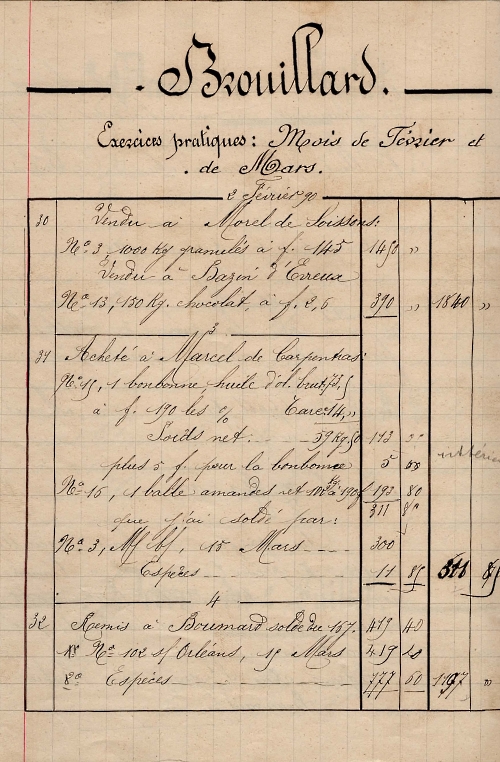 Brouillard.
Exercices pratiques: Mois de Février et
de Mars.
2 Février 90
30 Vendu à Morel de Soissons:
No 3, 1000 Kg granulés à f. 145 1450 "
Vendu à Bazin d'Evreux
No 13, 150 Kg. chocolat, à f. 2,6 390 " 1840 "
3
31 Acheté à Marcel de Carpentras:
No 15, 1 bonbonne, huile d'ol.
à f. 190 les % Tare: 14,"
Poids net: 59 Kg,50 113
plus 5 f. pour la bonbonne 5
No 16, 1 balle amandes 193 80
que j'ai soldé par: 311
No 3, 15 Mars 300
Espèces 11 85 311 85
4
32 Remis à Boumard solde du 157. 419 40
No 102 s/ Orléans, 15 Mars 419
Espèces 777 60 1197 "